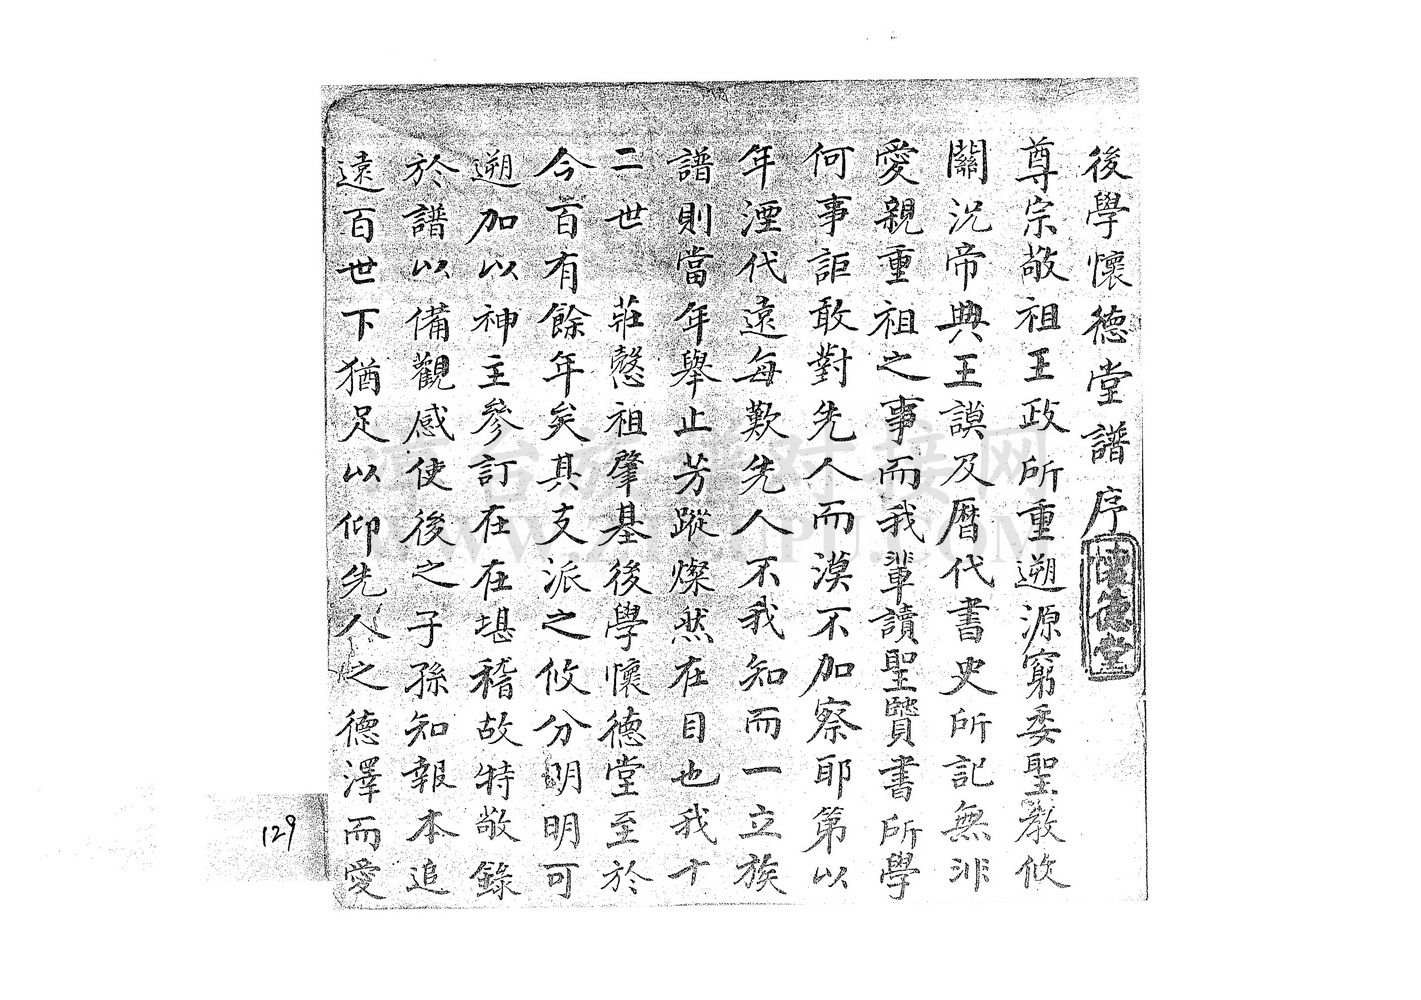 後學懷德堂譜序
懷德堂
尊宗敬祖王政所重遡源窮委聖教攸
關況帝典王謨及曆代書史所記無非
愛親重祖之事而我輩讀聖賢書所學
何事詎敢對先人而漠不加察耶第以
年湮代遠每歎先人不我知而一立族
譜則當年舉止芳蹤燦然在目也我十
二世 莊慤祖肇基後學懷德堂至於
今百有餘年矣其支派之攸分明明可
遡加以神主參訂在在堪稽故特敬錄
於譜以備觀感使後之子孫知報本追
遠百世下猶足以仰先人之德澤而愛
129
漳台族譜对接网
WWW.ZTZUPU.COM